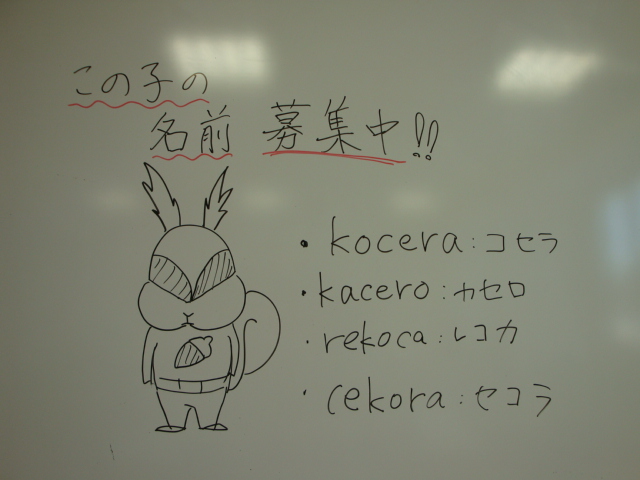 この子の
名前 募集中!!
・kocera:コセラ
・kacero:カセロ
・rekoca:レコカ
・cekora:セコラ